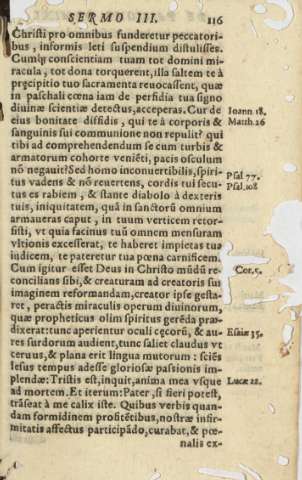 SERMO III. 116
Christi pro omnibus funderetur peccatori-
bus, informis leti suspendium distulisses.
Cumq; conscientiam tuam tot domini mi-
racula, tot dona torquerent, illa saltem te à
pręcipitio tuo sacramenta reuocassent, quæ
in paschali cœna iam de perfidia tua signo
diuinæ scientiæ detectus, acceperas. Cur de
eius bonitate diffidis, qui te à corporis &
Ioann 18.
sanguinis sui communione non repulit? qui
Matth. 26
tibi ad comprehendendum se cum turbis &
armatorum cohorte veniẽti, pacis osculum
nõ negauit? Sed homo inconuertibilis, spiri-
tus vadens & nõ reuertens, cordis tui secu-
Psal 77.
tus es rabiem, & stante diabolo à dexteris
Psal. 108
tuis, iniquitatem, quã in sanctorũ omnium
armaueras caput, in tuum verticem retor-
sisti, vt quia facinus tuũ omnem mensuram
vltionis excesserat, te haberet impietas tua
iudicem, te pateretur tua pœna carnificem.
Cum igitur esset Deus in Christo mũdũ re-
Cor. 5.
concilians sibi, & creaturam ad creatoris sui
imaginem reformandam, creator ipse gesta-
ret, peractis miraculis operum diuinorum,
quæ propheticus olim spiritus gerẽda præ-
dixerat: tunc aperientur oculi cęcorũ, & au-
res surdorum audient, tunc saliet claudus vt
Esaiæ 35.
ceruus, & plana erit lingua mutorum: sciẽs
Iesus tempus adesse gloriosæ passionis im-
plendæ: Tristis est, inquit, anima mea vsque
Lucæ 22.
ad mortem. Et iterum: Pater, si fieri potest,
trãseat à me calix iste. Quibus verbis quan-
dam formidinem profitẽtibus, nostræ infir-
mitatis affectus participãdo, curabat, & pœ-
nalis ex-